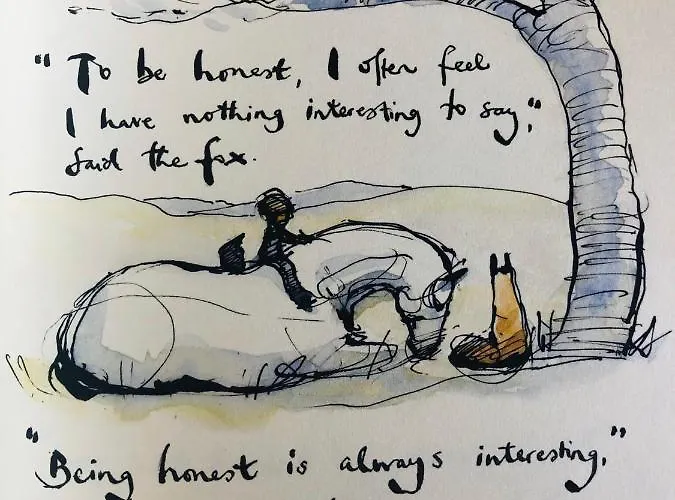 "To be honest, I often feel
I have nothing interesting to say,"
Said the fox.
"Being honest is always interesting,"